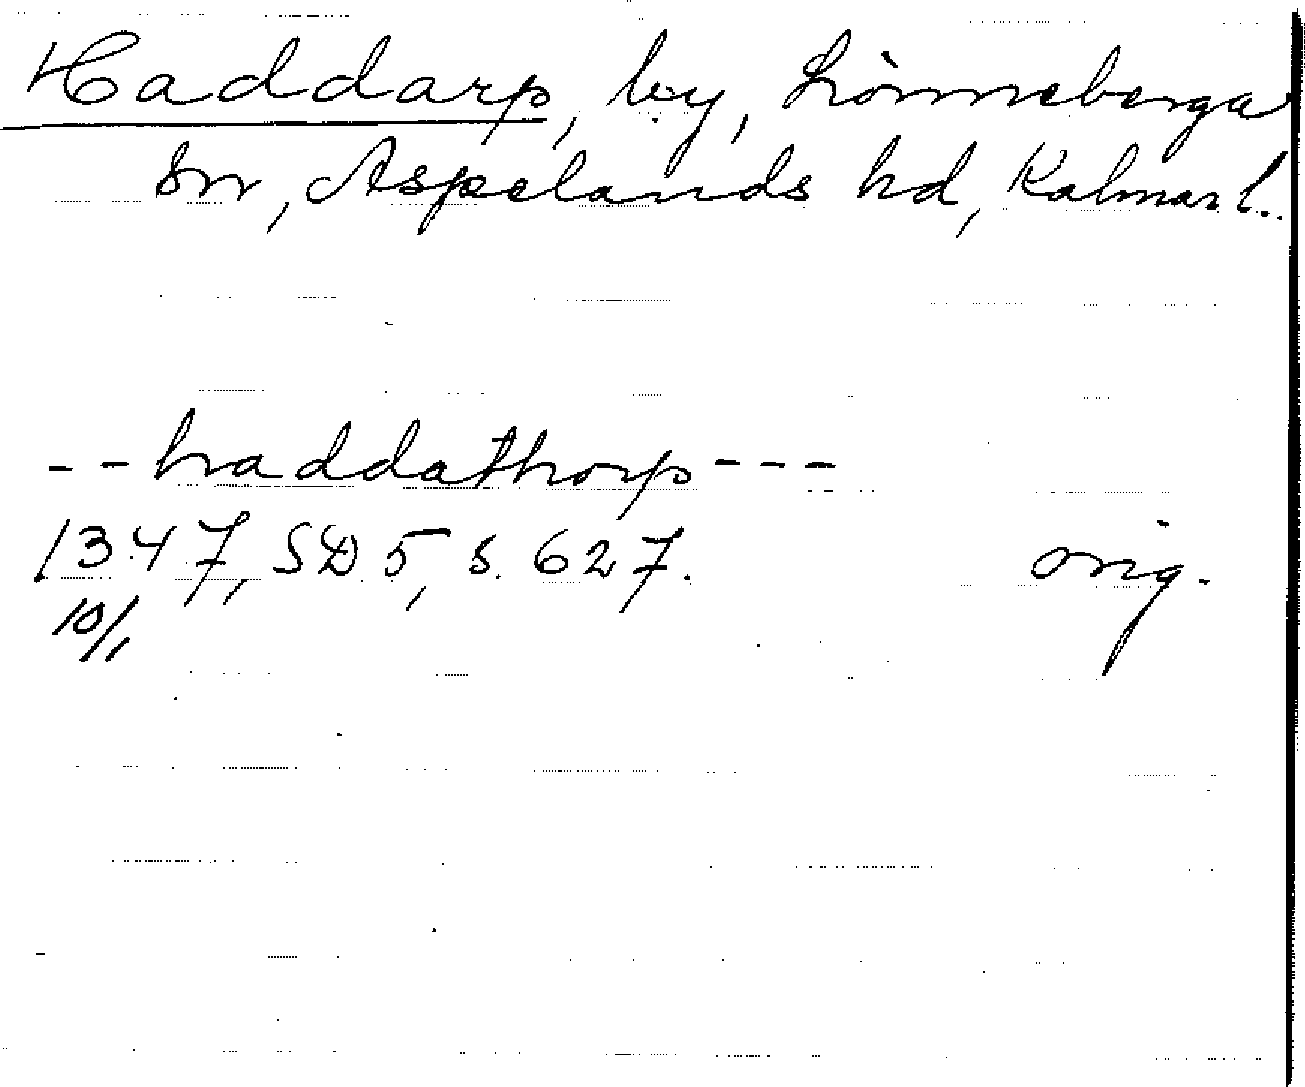 Haddarp, by, Lönneberga
sn, Aspelands hd, Kalmar l.
-- haddathorp ---
1347, SD 5, s. 627. orig.
10/1